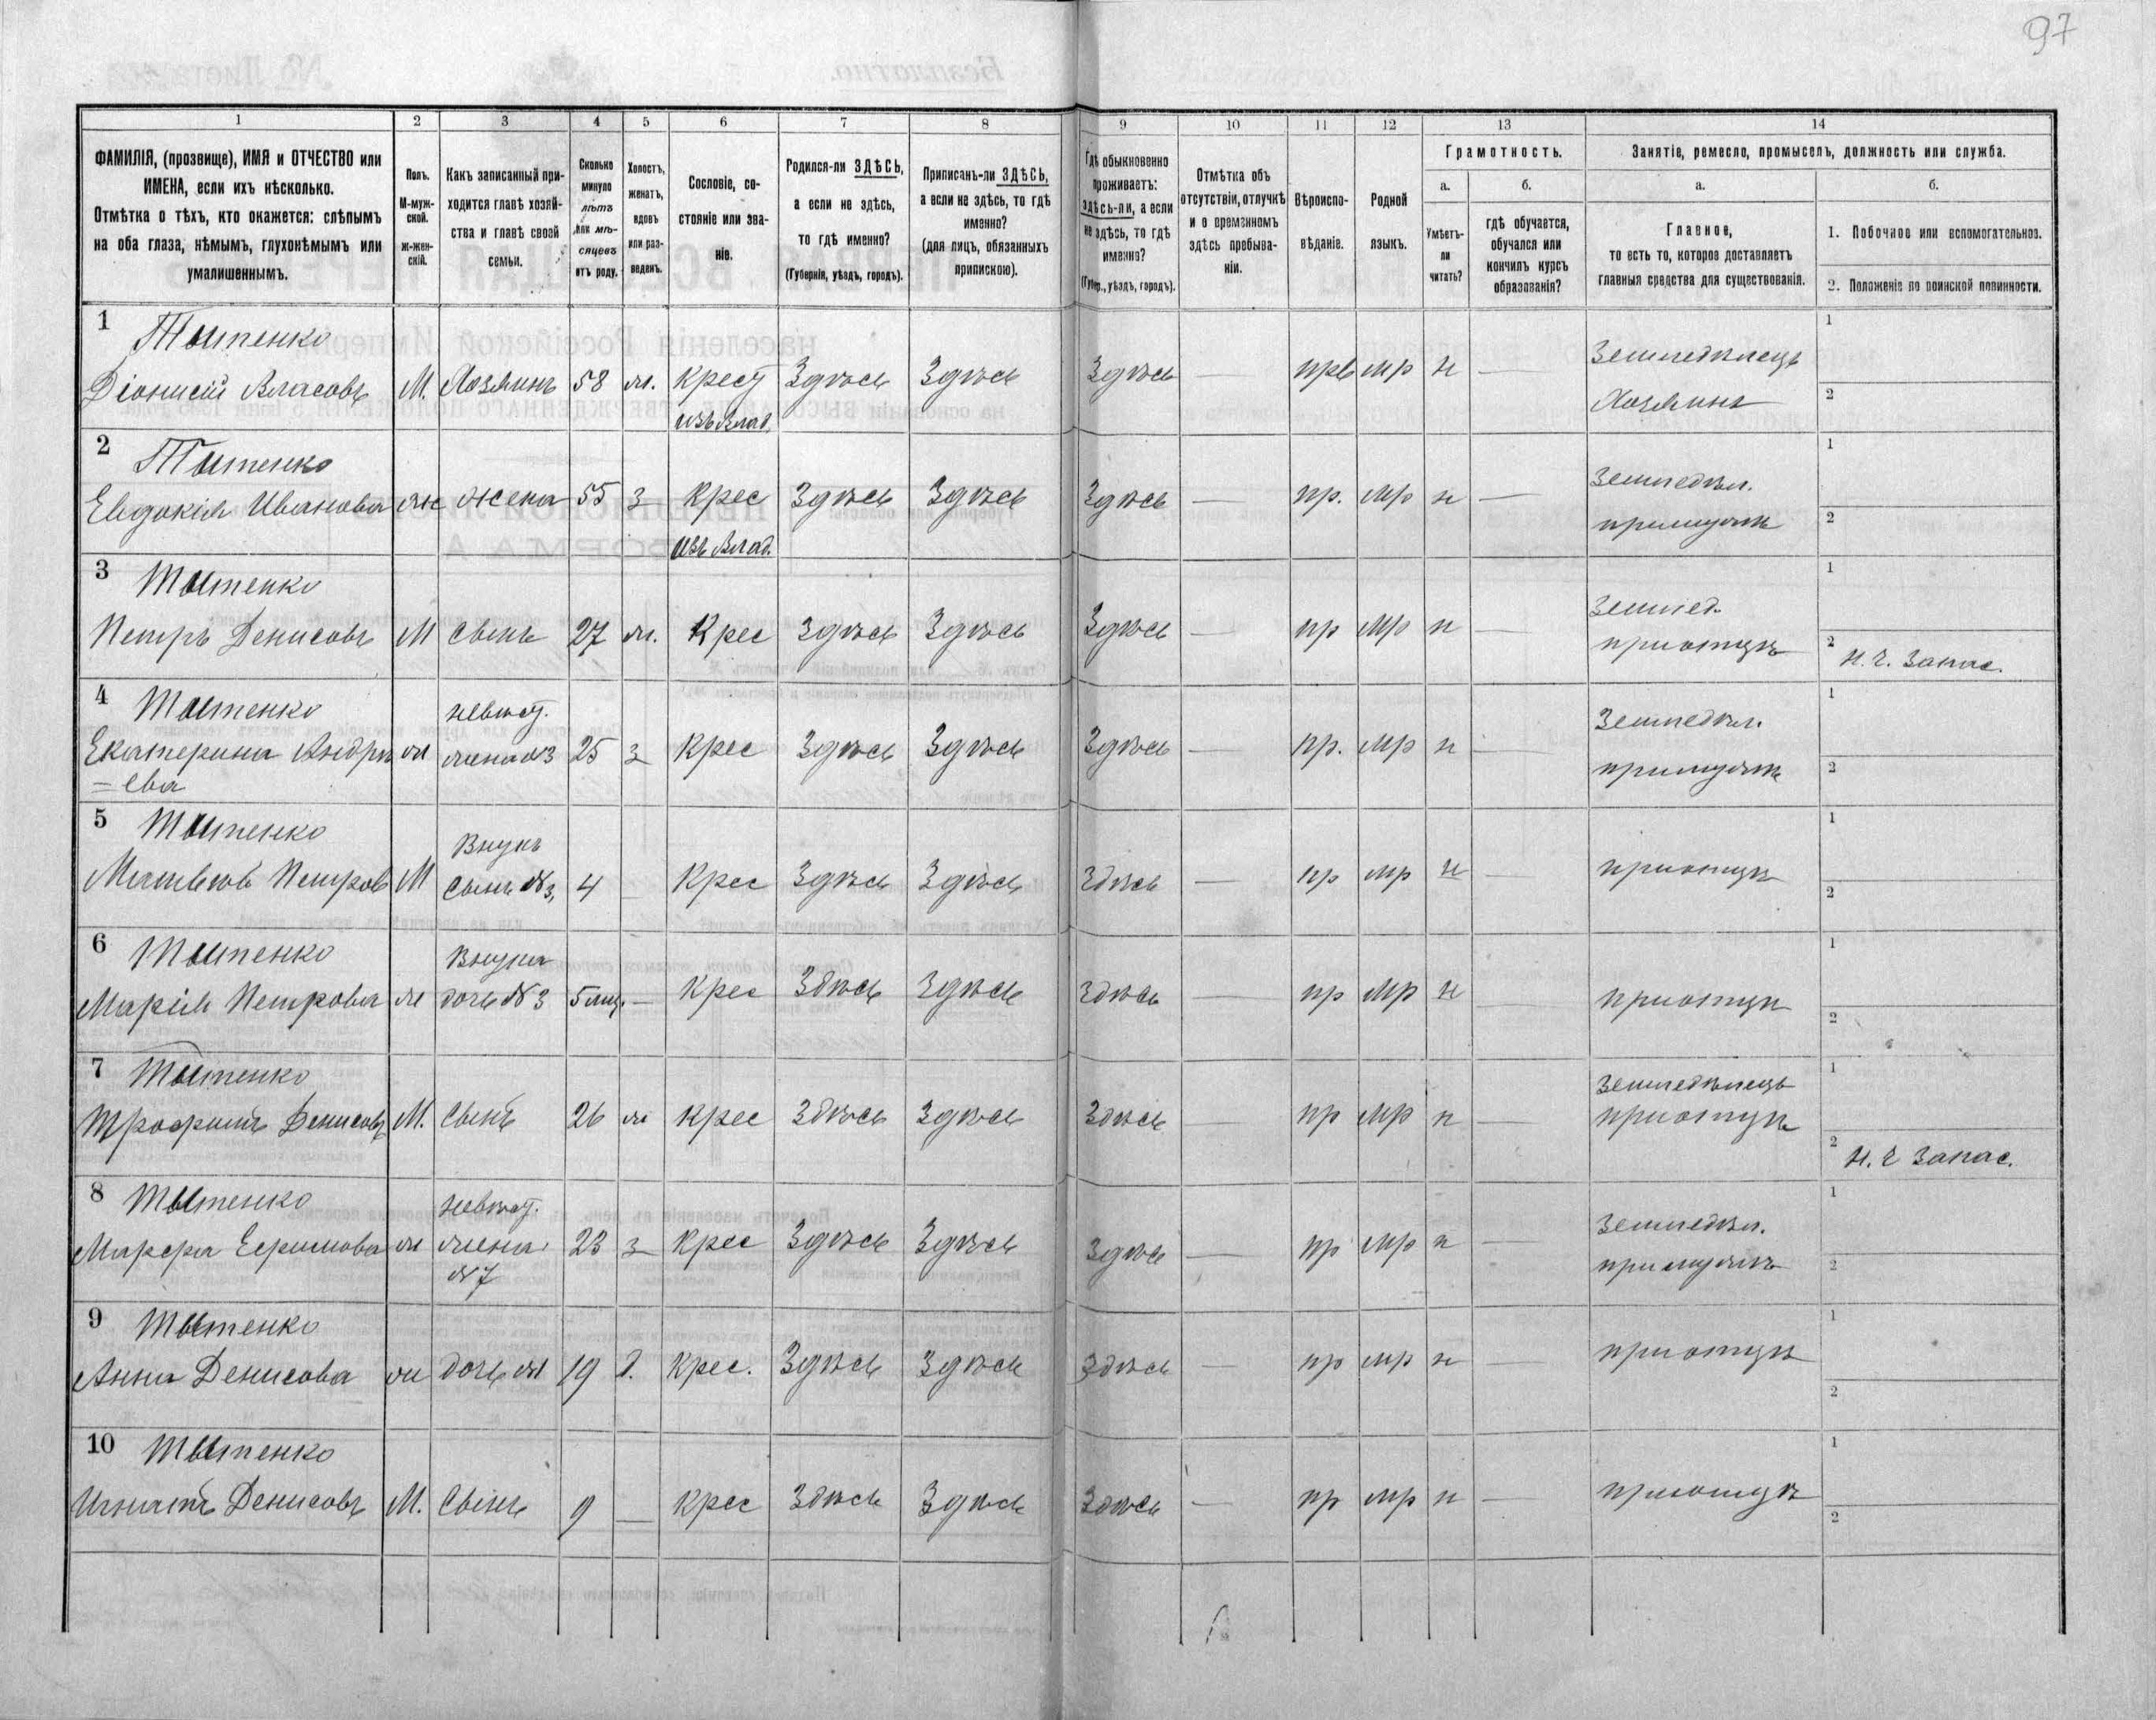 97
1 2 3 4 5 6 7 8 9 10 11 12 13 14
ФАМИЛІЯ, (прозвище), ИМЯ и ОТЧЕСТВО или
ИМЕНА, если ихъ нѣсколько.
Отмѣтка о тѣхъ, кто окажется: слѣпымъ
на оба глаза, нѣмымъ, глухонѣмымъ или
умалишеннымъ.
Полъ.
М-муж-
ской.
ж-жен-
скій.
Какъ записанный при-
ходится главѣ хозяй-
ства и главѣ своей
семьи.
Сколько
минуло
лѣтъ
или мѣ-
сяцевъ
отъ роду.
Холостъ,
женатъ,
вдовъ
или раз-
веденъ.
Сословіе, со-
стояніе или зва-
ніе.
Родился-ли ЗДѢСЬ,
а если не здѣсь,
то гдѣ именно?
(Губернія, уѣздъ, городъ).
Приписанъ-ли ЗДѢСЬ,
а если не здѣсь, то гдѣ
именно?
(для лицъ, обязанныхъ
припискою).
Гдѣ обыкновенно
проживаетъ:
здѣсь-ли, а если
не здѣсь, то гдѣ
именно?
(Губер., уѣздъ, городъ).
Отмѣтка объ
отсутствіи, отлучкѣ
и о временномъ
здѣсь пребыва-
ніи.
Вѣроиспо-
вѣданіе.
Родной
языкъ.
Грамотность.
а.
Умѣетъ-
ли
читать?
б.
гдѣ обучается,
обучался или
кончилъ курсъ
образованія?
Занятіе, ремесло, промыселъ, должность или служба.
а.
Главное,
то есть то, которое доставляетъ
главныя средства для существованія.
б.
1. Побочное или вспомогательное.
2. Положеніе по воинской повинности.
1 Тытенко
Діонисій Власовъ М. Хозяинъ 58 ж. Крест Здѣсь Здѣсь Здѣсь — прв мр н — Земледѣлецъ
изъ Влад. Хозяинъ
1
2
2 Тытенко
Евдокія Иванова ж жена 55 з Крес Здѣсь Здѣсь Здѣсь — пр. мр н — Земледѣл.
изъ Влад. при мужѣ
1
2
3 Тытенко
Петръ Денисовъ М сынъ 27 ж. Крес Здѣсь Здѣсь Здѣсь — пр мр н — Землед.
при отцѣ
1
2 Н. Ч. Запас.
4 Тытенко невѣст.
Екатерина Андре ж жена №3 25 з Крес Здѣсь Здѣсь Здѣсь — пр. мр н — Земледѣл.
=ева при мужѣ
1
2
5 Тытенко Внукъ
Матвѣй Петров М сынъ №3, 4 — Крес Здѣсь Здѣсь Здѣсь — пр мр н — при отцѣ
1
2
6 Тытенко Внука
Марія Петрова ж дочь №3 5 мц. — Крес Здѣсь Здѣсь Здѣсь — пр мр н — при отцѣ
1
2
7 Тытенко Земледѣлецъ
Трофимъ Денисовъ М. Сынъ 26 ж Крес Здѣсь Здѣсь Здѣсь — пр мр н — при отцѣ
1
2 Н. Ч Запас.
8 Тытенко невѣст. Земледѣл.
Марфа Ефимова ж жена 23 з Крес Здѣсь Здѣсь Здѣсь — пр мр н — при мужѣ
№7
1
2
9 Тытенко
Анна Денисова ж дочь №1 19 д. Крес. Здѣсь Здѣсь Здѣсь — пр мр н при отцѣ
1
2
10 Тытенко
Игнатъ Денисовъ М. Сынъ 9 — Крес Здѣсь Здѣсь Здѣсь — пр мр н — при отцѣ
1
2